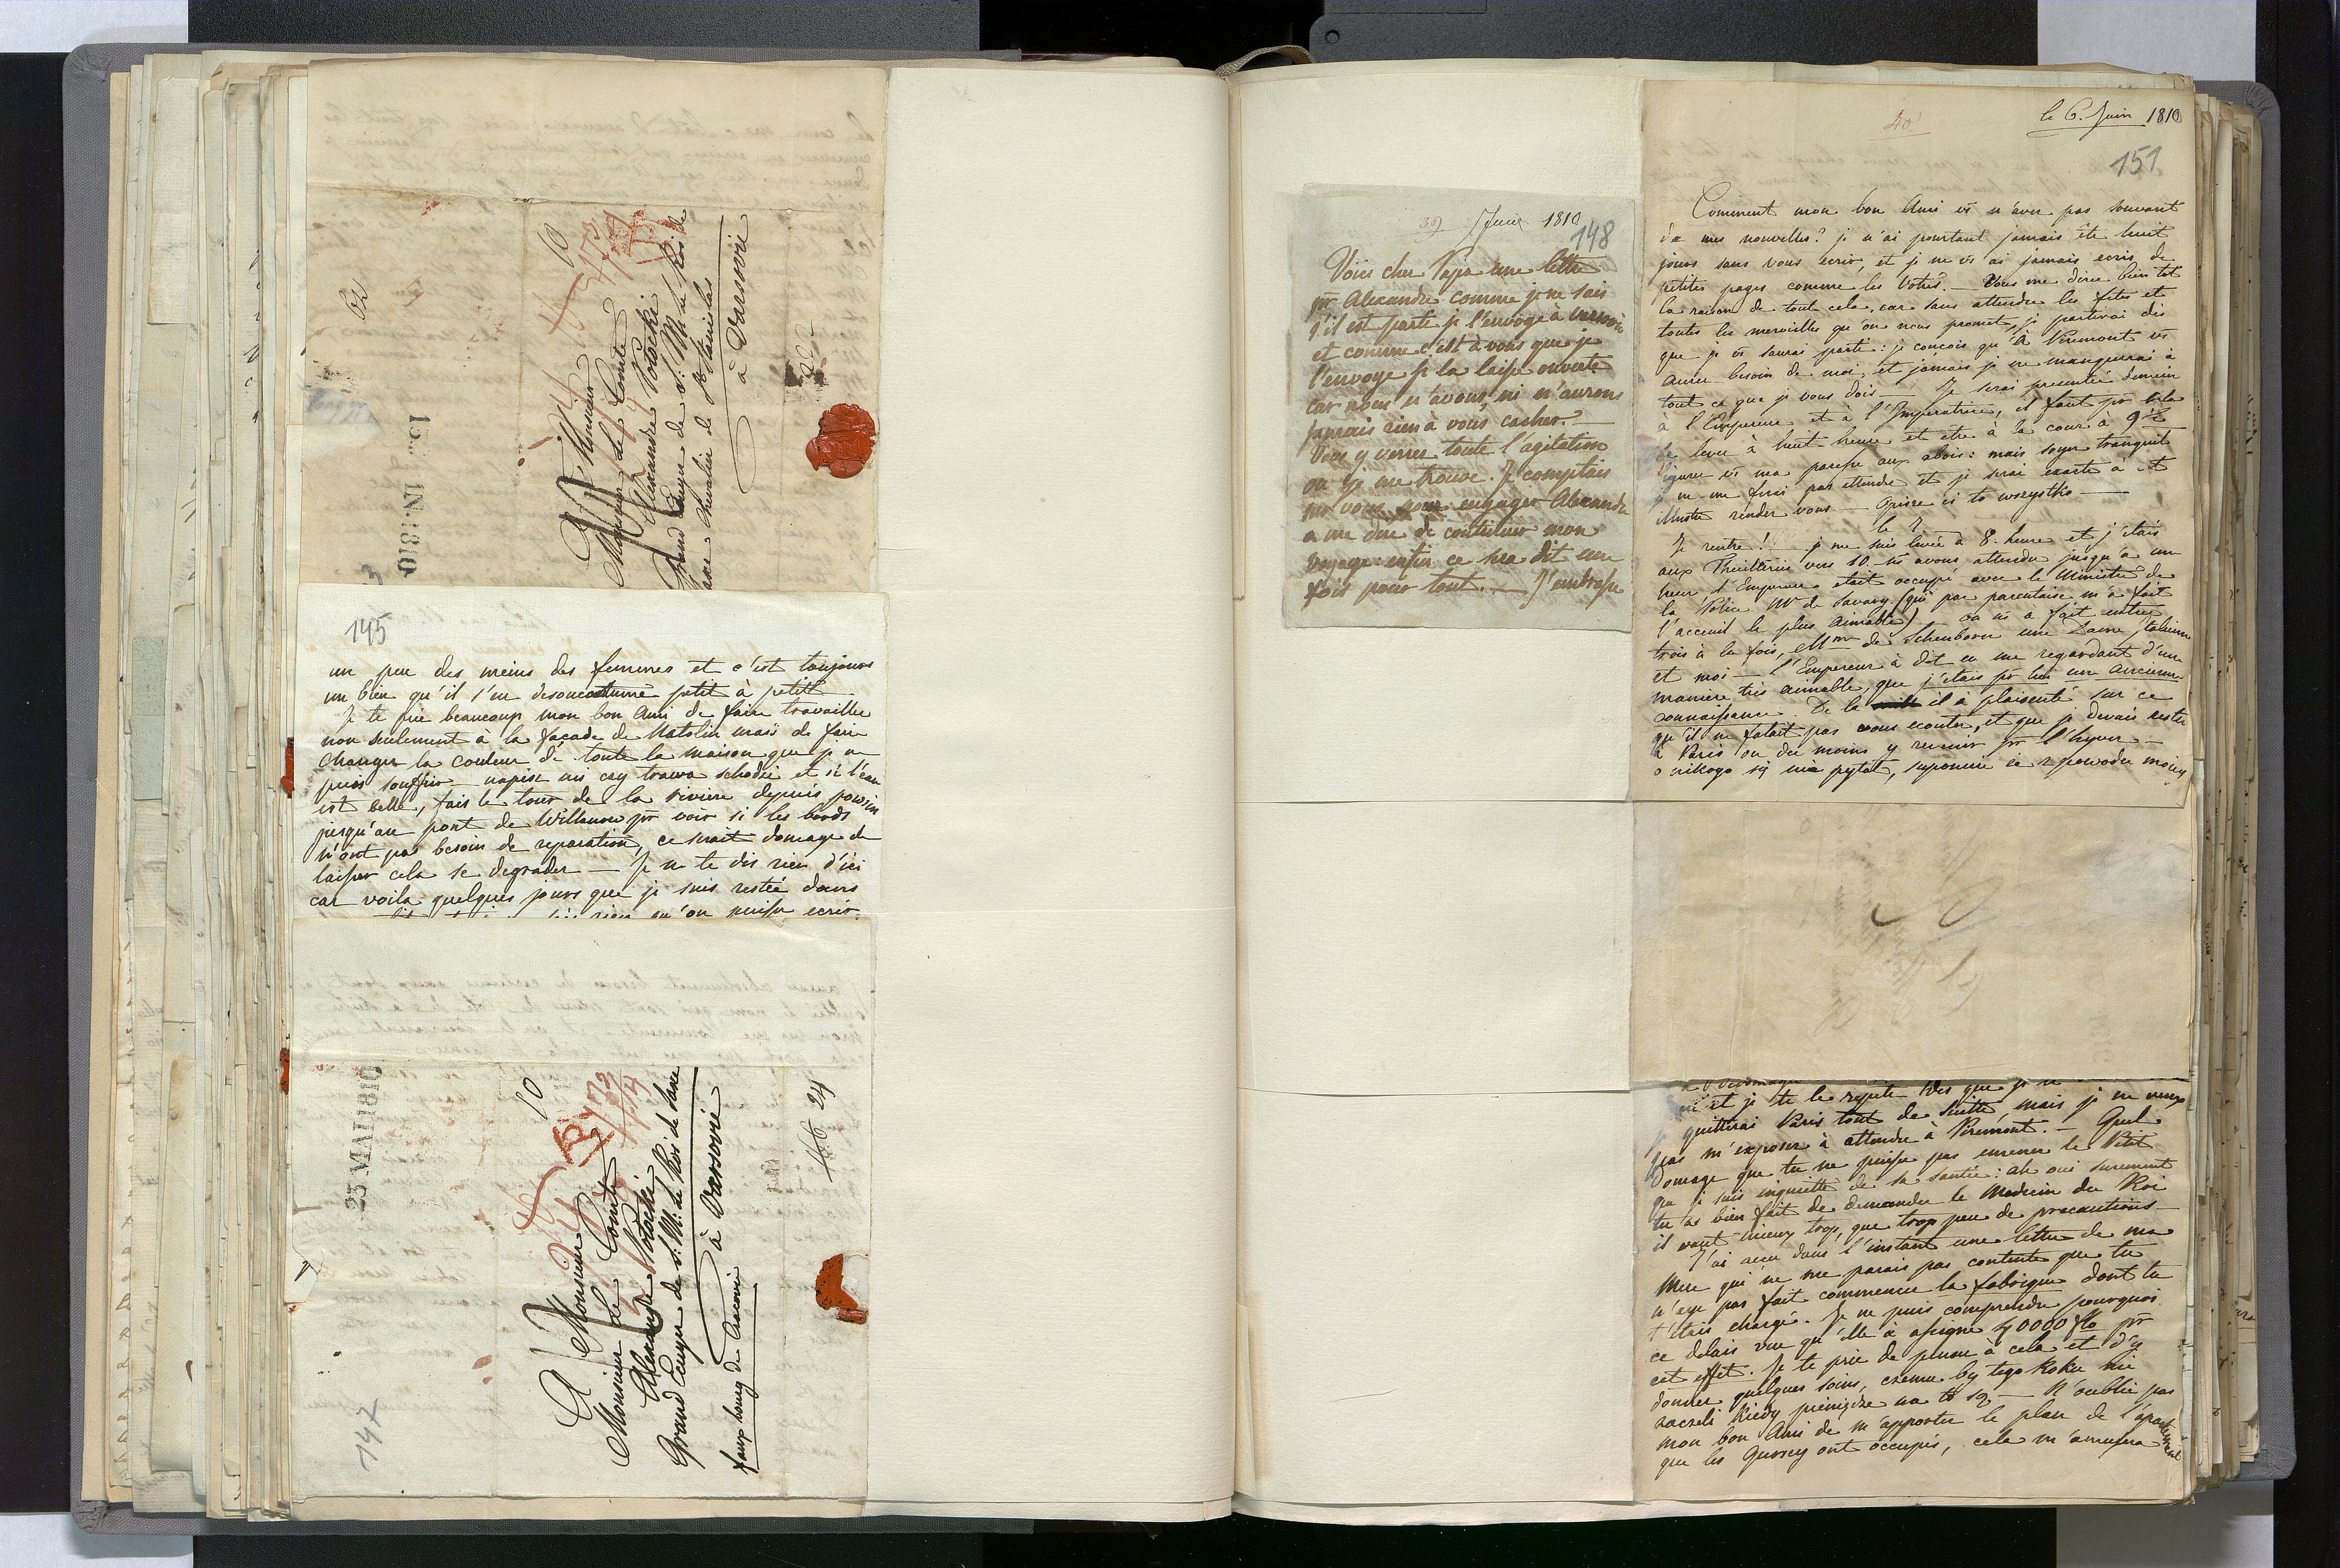 62
10
A Monsieur
Monsieur le Comte
Alexandre Potocki
Grand Ecuyer de S. M. le Roi de
Saxe Chevalier de St Stanislas
à Varsovie
1810
145
un peu des mains des femmes et c'est toujours
un bien qu'il s'en desacoutume petit à petit
Je te prie beaucoup mon bon Ami de faire travailler
non seulement à la façade de Natolin mais de faire
changer la couleur de toute la maison que je ne
puis souffrir — napisz mi czy trawa schodzi et si l'eau
est belle, fais le tour de la riviere depuis
jusqu'au pont de Willanow pr voir si les bords
n'ont pas besoin de reparation, ce serait domage de
laisser cela se degrader — Je ne te dis rien d'ici
car voila quelques jours que je suis restée dans
qu'on puisse ecrire
23 MAI 1810
10
A Monsieur
Monsieur le Comte
Alexandre Potocki
Grand Ecuyer de S. M. le Roi de Saxe
à Varsovie
faux bourg de Cracovie
24
147
39) 5 Juin 1810
148
Voici cher Papa une lettre
pr Alexandre comme je ne sais
s'il est parti je l'envoye à
et comme c'est à vous que je
l'envoye je la laisse ouverte
car nous n'avons, ni n'aurons
jamais rien à vous cacher. —
Vous y verrez toute l'agitation
ou je me trouve. Je comptais
sur vous pour engager Alexandre
a me dire de continuer mon
voyage enfin ce sera dit une
fois pour tout. — J'embrasse
40
le 6. Juin 1810
151
Comment mon bon Ami vs n'avez pas souvent
de mes nouvelles? je n'ai pourtant jamais été huit
jours sans vous ecrire, et je ne vs ai jamais ecris de
petites pages comme les Votres. — Vous me direz bien tot
la raison de tout cela, car sans attendre les fêtes et
toutes les merveilles qu'on nous promet, je partirai dès
que je vs saurai parti: je conçois qu'à Piremont vs
aurez besoin de moi, et jamais je ne manquerai à
tout ce que je vous dois — Je serai presentée demain
à l'Empereur et à l'Imperatrice, il faut pr cela
se lever à huit heure et etre à la cour à 9 1/2
figurez vs ma paresse aux abois: mais soyez tranquil
je ne me ferai pas attendre et je serai exacte à cet
illustre rendez vous. — Opisze ci to wszystko —
le 7
Je rentre! — je me suis levée à 8. heure et j'etais
aux Thuilleries vers 10. ns avons attendu jusqu'a une
heur l'Empereur etait occupé avec le Ministre de
la Police Mr de Savary (qui par parentaise m'a fait
l'acceuil le plus aimable) — on ns a fait entrer
trois à la fois, Mme de Schenborn une Dame Italienne
et moi — l'Empereur à dit en me regardant d'une
maniere très aimable, que j'etais pr lui une ancienne
connaissance. De la il à plaisenté sur ce
qu'il ne falait pas vous ecouter, et que je devais rester
à Paris ou du moins y revenir pr l'hyver —
o nikogo się nie pytał,
et je te le repete dès que je
quitterai Paris tout de suitte, mais je ne veux
pas m'exposer à attendre à Piremont. — Quel
domage que tu ne puisse pas emener le Petit
que je suis inquiette de sa santée: ah oui surement
tu as bien fait de demander le Medecin du Roi
il vaut mieux trop, que trop peu de precautions —
J'ai recu dans l'instant une lettre de ma
Mere qui ne me parais pas contente que tu
n'aye pas fait commencer la fabrique dont tu
t'étais chargé. Je ne puis comprendre pourquoi
ce delais vue qu'elle à assigné 40000 flo pr
cet effet. Je te prie de penser à cela et d'y
donner quelques soins, czemu by tego Roku nie
zaczeli kiedy pieniądze na to są — N'oublie pas
mon bon Ami de m'apporter le plan de l'apartement
que les ont occupés, cela m'amusera